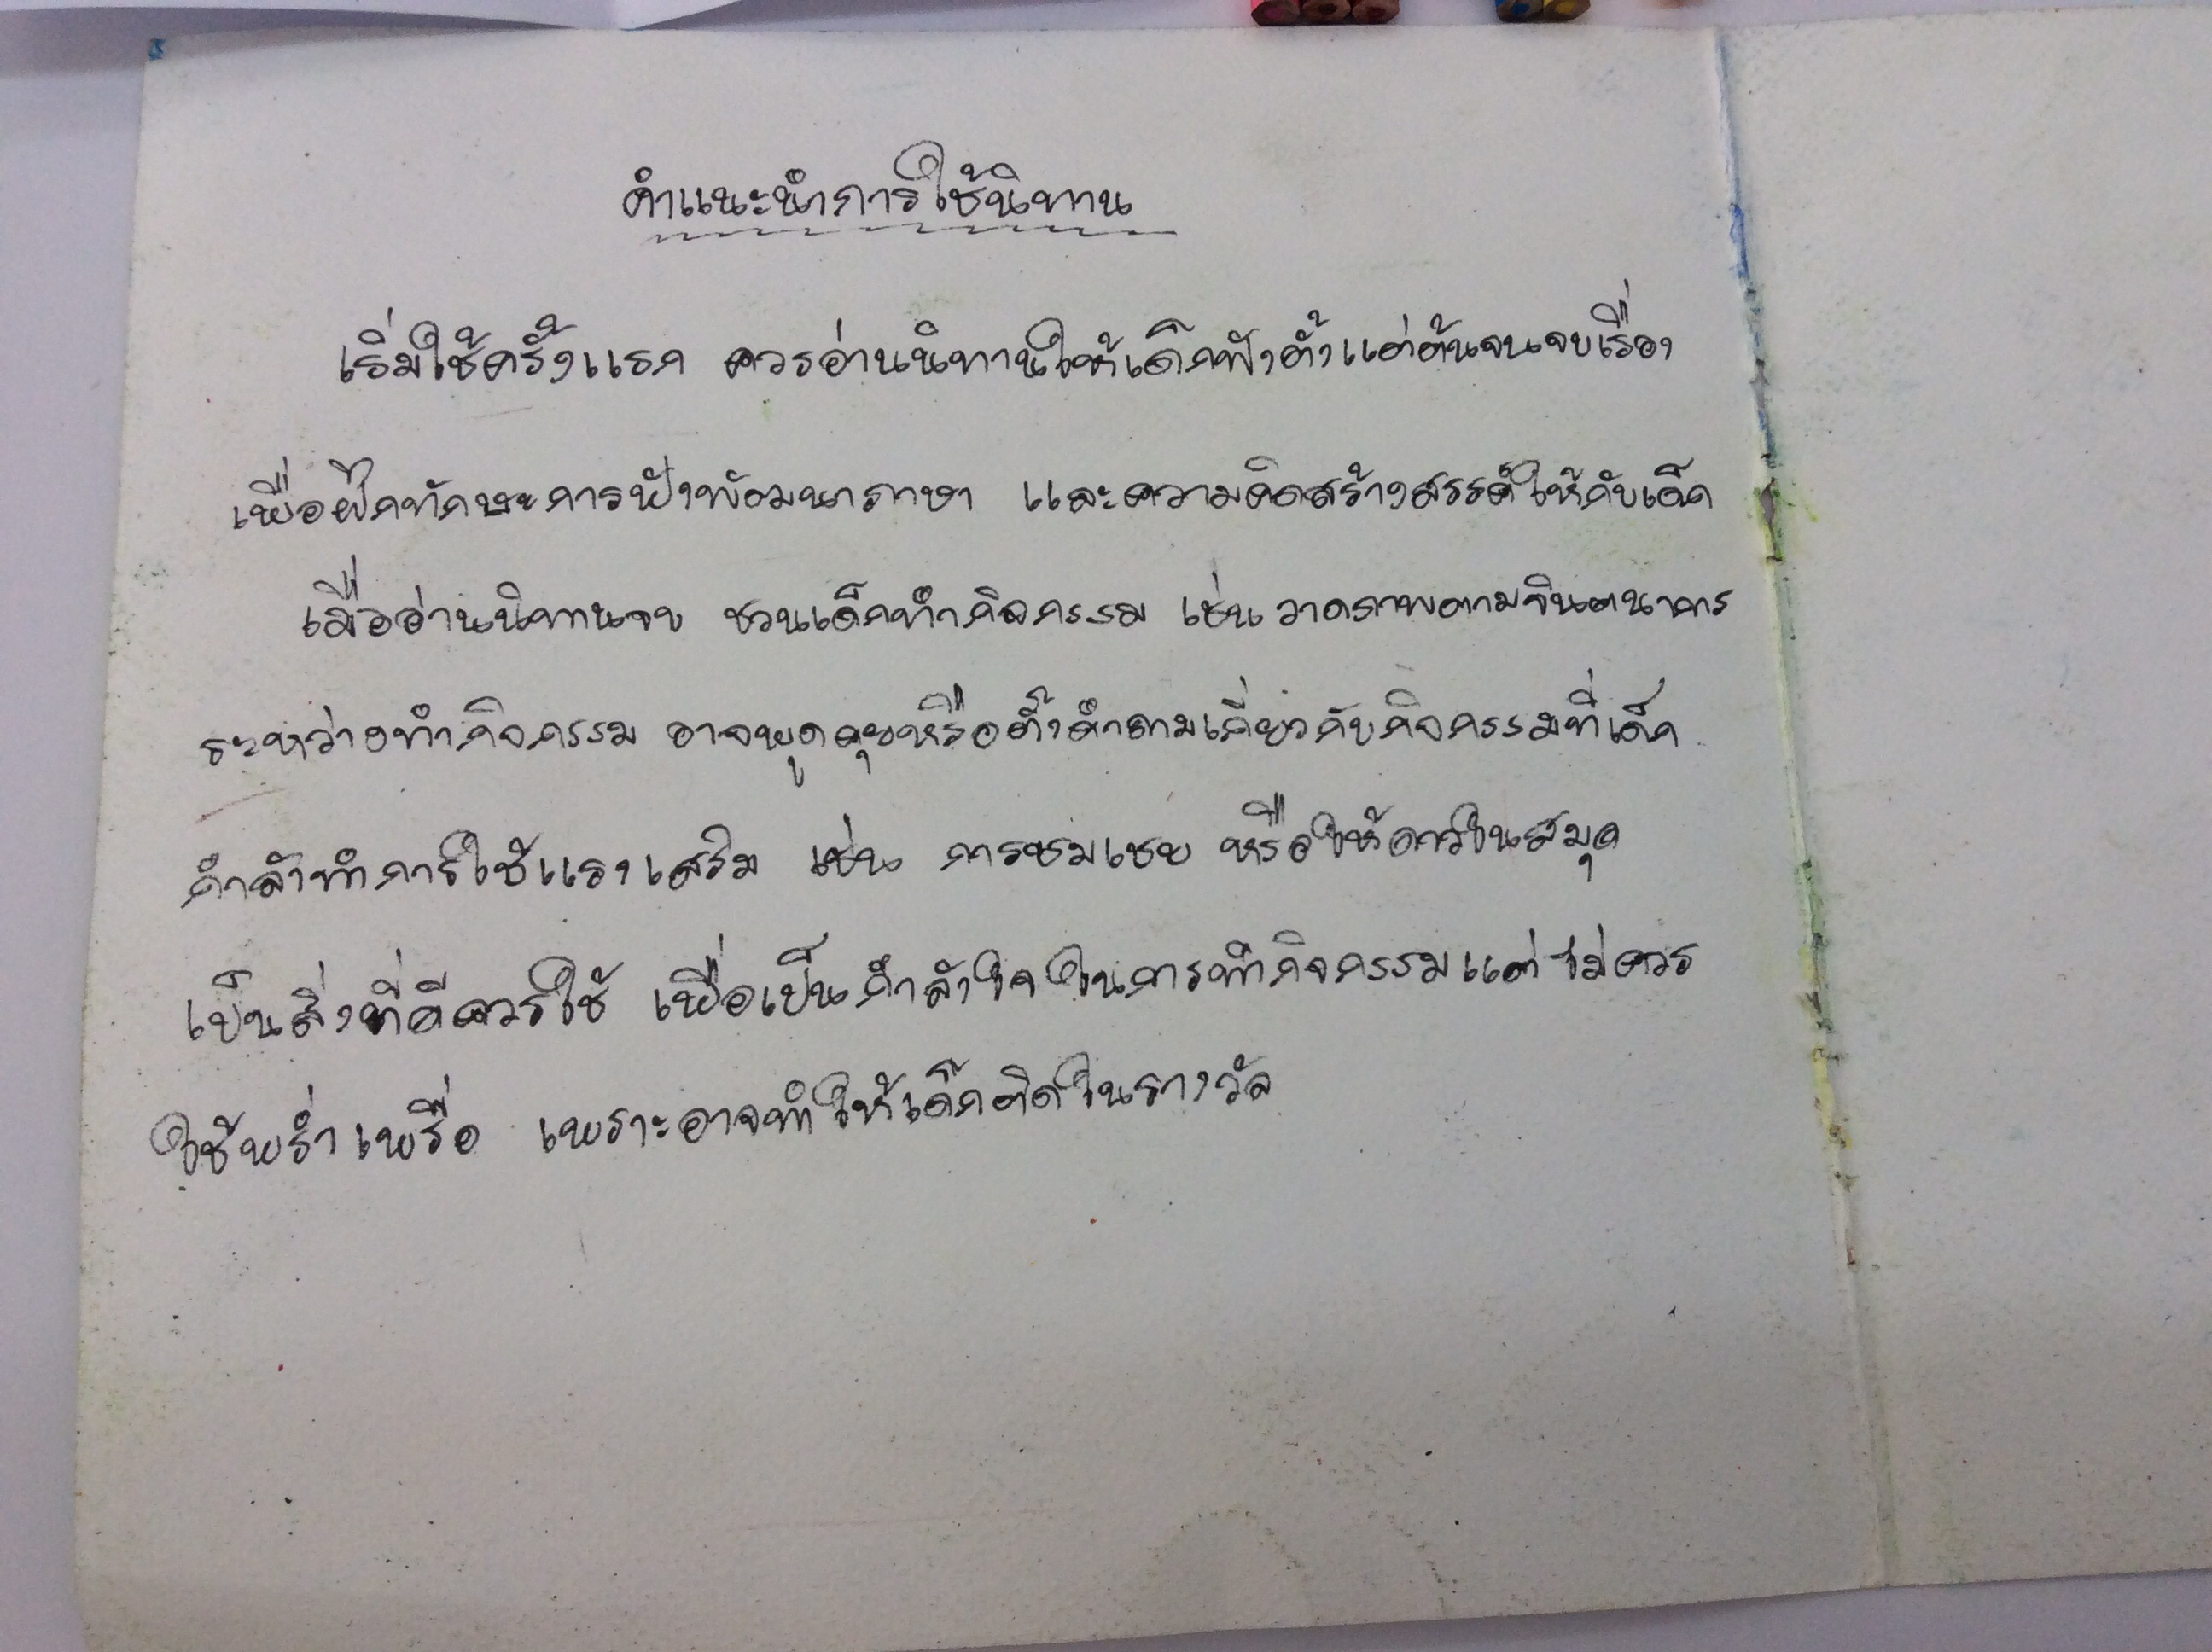 คำแนะนำการใช้นิทาน
เริ่มใช้ครั้งแรก ควรอ่านนิทานให้เด็กฟังตั้งแต่ต้นจนจบเรื่อง
เพื่อฝึกทักษะการฟังพัฒนาภาษา และความคิดสร้างสรรค์ให้กับเด็ก
เมื่ออ่านนิทานจบ ชวนเด็กทำกิจกรรม เช่น วาดภาพตามจินตนาการ
ระหว่างทำกิจกรรม อาจพูดคุยหรือตั้งคำถามเกี่ยวกับกิจกรรมที่เด็ก
กำลังทำการใช้แรงเสริม เช่น การชมเชย หรือให้ดาวในสมุด
เป็นสิ่งที่ดีควรใช้ เพื่อเป็นกำลังใจในการทำกิจกรรมแต่ไม่ควร
ใช้พร่ำเพรื่อ เพราะอาจทำให้เด็กติดในรางวัล